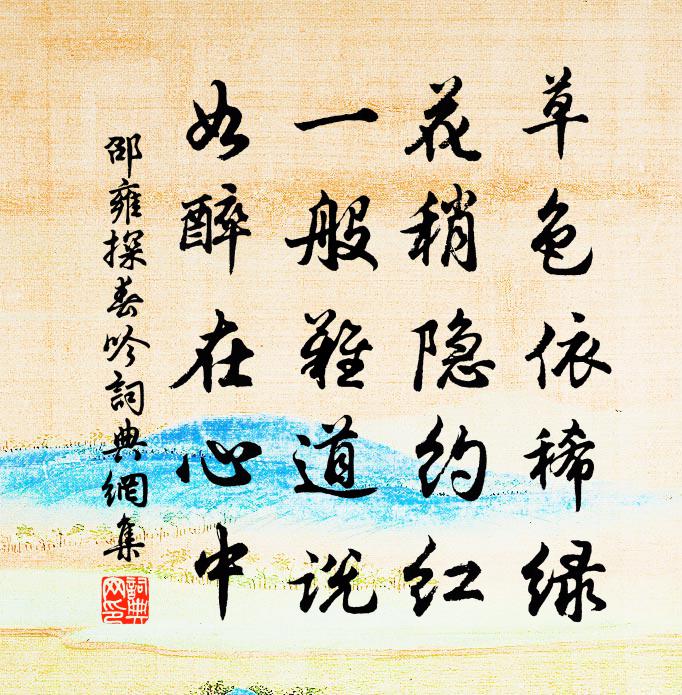 草色依稀绿
花稍隐约红
一般难道说
如醉在心中
邵雍探春吟詞典網集
詞典网印